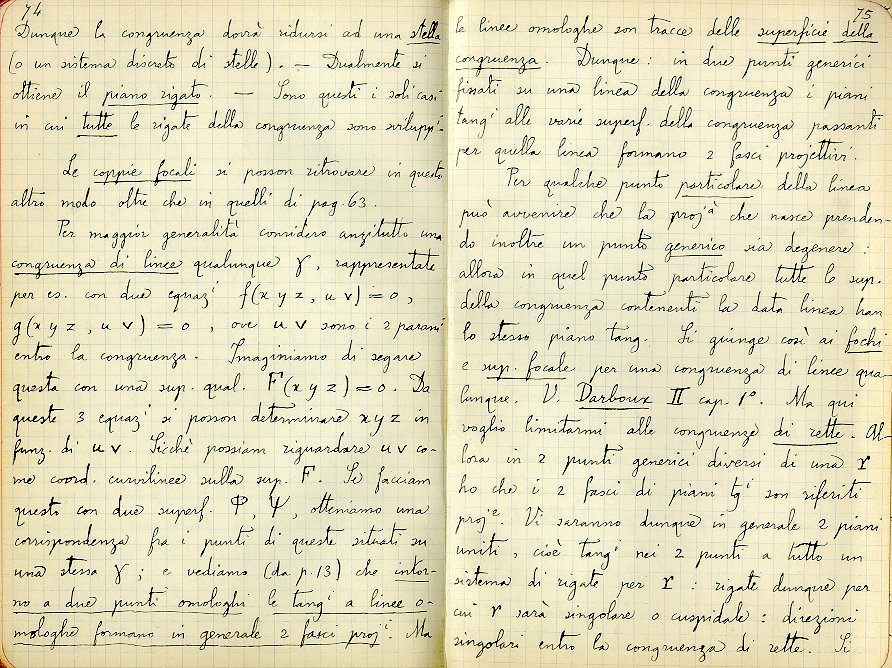 74
Dunque la congruenza dovrà ridursi ad una stella
(o un sistema discreto di stelle). — Dualmente si
ottiene il piano rigato. — Sono questi i soli casi
in cui tutte le rigate della congruenza sono svilupp.i
Le coppie focali si posson ritrovare in questo
altro modo oltre che in quelli di pag. 63.
Per maggior generalità considero anzitutto una
congruenza di linee qualunque γ, rappresentate
per es. con due equaz.i f(x y z, u v) = 0,
g(x y z, u v) = 0, ove u v sono i 2 param.i
entro la congruenza. Imaginiamo di segare
questa con una sup. qual. F(x y z) = 0. Da
queste 3 equaz.i si posson determinare x y z in
funz. di u v. Sicchè possiam riguardare u v co-
me coord. curvilinee sulla sup. F. Se facciam
questo con due superf. Φ, Ψ, otteniamo una
corrispondenza fra i punti di queste situati su
una stessa γ; e vediamo (da p. 13) che intor-
no a due punti omologhi le tang.i a linee o-
mologhe formano in generale 2 fasci proj.i. Ma
75
le linee omologhe son tracce delle superficie della
congruenza. Dunque: in due punti generici
fissati su una linea della congruenza i piani
tang.i alle varie superf. della congruenza passanti
per quella linea formano 2 fasci projettivi.
Per qualche punto particolare della linea
può avvenire che la proj.à che nasce prenden-
do inoltre un punto generico sia degenere:
allora in quel punto particolare tutte le sup.
della congruenza contenenti la data linea han
lo stesso piano tang. Si giunge così ai fochi
e sup. focale per una congruenza di linee qua-
lunque. V. Darboux II cap. 1º. Ma qui
voglio limitarmi alle congruenze di rette. Al-
lora in 2 punti generici diversi di una r
ho che i 2 fasci di piani tg.i son riferiti
proj.e. Vi saranno dunque in generale 2 piani
uniti, cioè tang.i nei 2 punti a tutto un
sistema di rigate per r: rigate dunque per
cui r sarà singolare o cuspidale: direzioni
singolari entro la congruenza di rette. Si